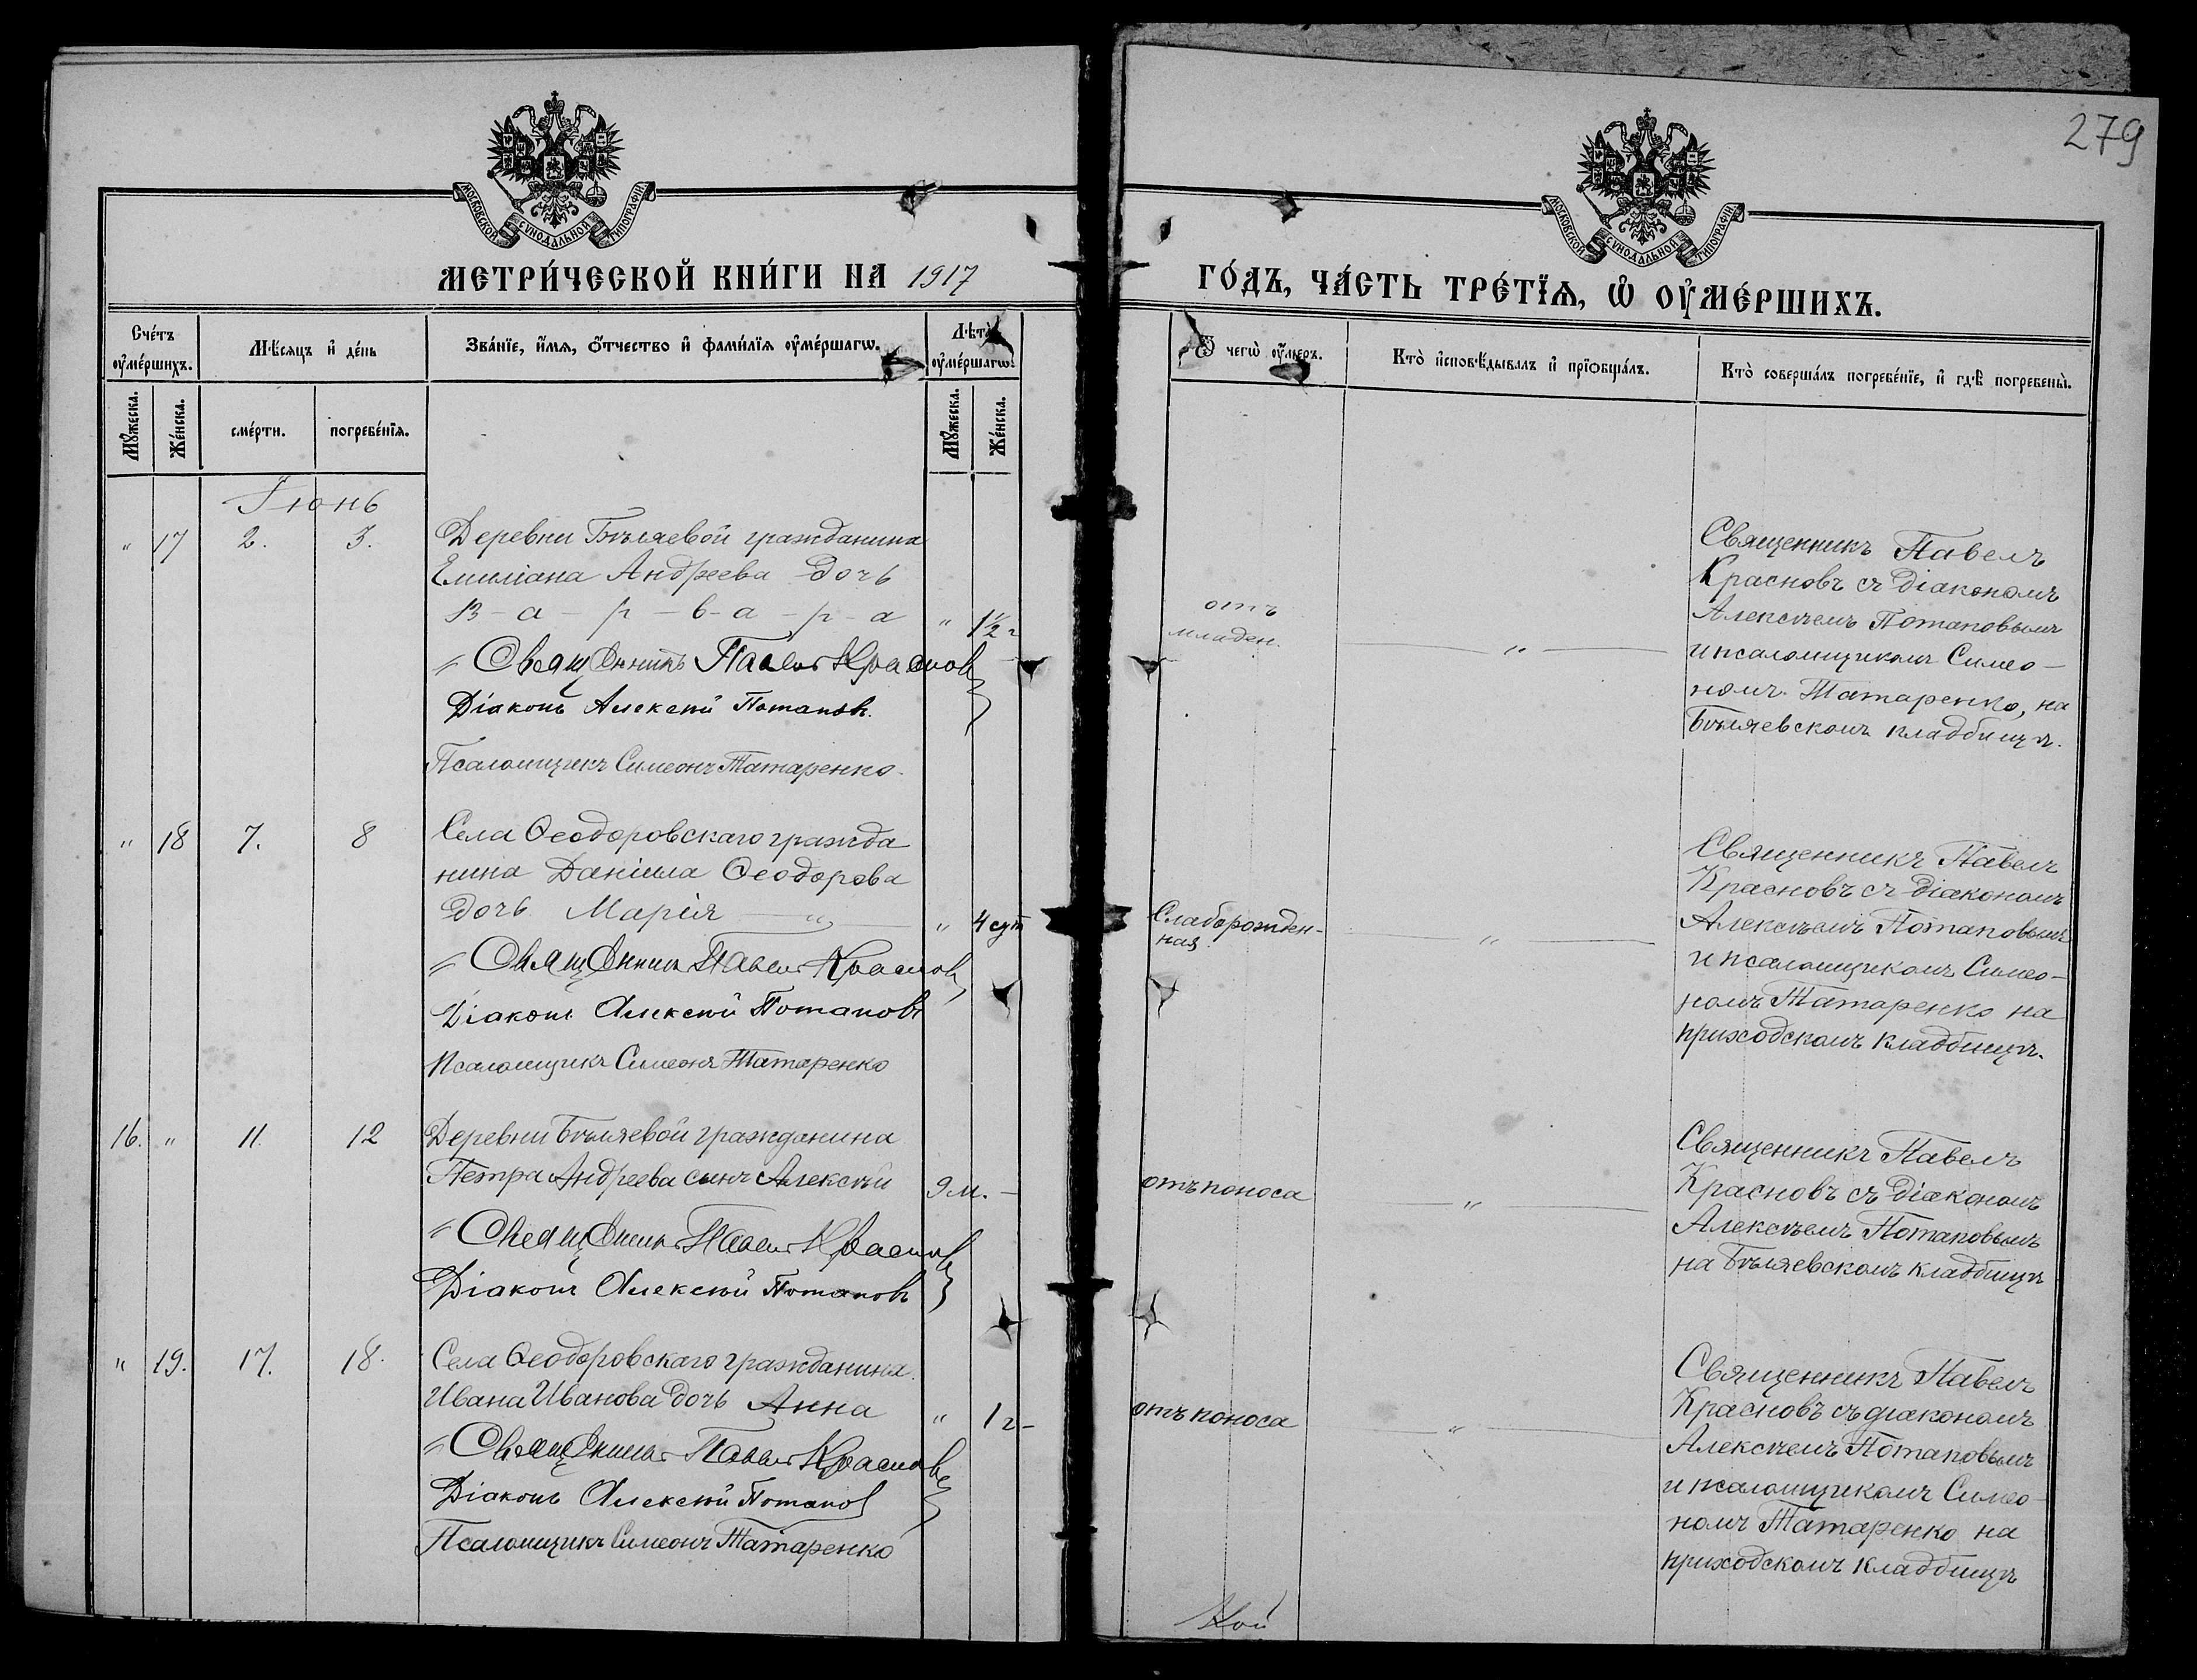 279
МОСКОВСКОЙ СУНОДАЛЬНОЙ ТИПОГРАФІИ
МОСКОВСКОЙ СУНОДАЛЬНОЙ ТИПОГРАФІИ
МЕТРИ́ЧЕСКОЙ КНИ́ГИ НА 1917
ГО́ДЪ, ЧА́СТЬ ТРЕ́ТЇѦ, Ѡ҆ ОУ҆МЕ́РШИХЪ.
Сче́тъ оу҆ме́ршихъ.
Мѣ́сяцъ и҆ де́нь
Зва́нїе, и҆́мѧ, ѻ҆́тчество и҆ фами́лїѧ оу҆ме́ршагѡ.
Лѣта̀ оу҆ме́ршагѡ.
Ѿ чегѡ̀ оу҆́меръ.
Кто̀ и҆сповѣ́дывалъ и҆ прїѡбща́лъ.
Кто̀ соверша́лъ погребе́нїе, и҆ гдѣ̀ погребены̀.
Му́жеска.
Же́нска.
сме́рти.
погребе́нїѧ.
Му́жеска.
Же́нска.
Іюнь
" 17 2. 3.
Деревни Бѣляевой гражданина
Емиліана Андреева дочь
В-а-р-в-а-р-а " 1½ г
Священникъ Павелъ Красновъ
Діаконъ Алексѣй Потаповъ.
Псаломщикъ Симеонъ Татаренко.
отъ
младен.
"
Священникъ Павелъ
Красновъ съ діакономъ
Алексѣемъ Потаповымъ
и псаломщикомъ Симео-
номъ Татаренко, на
Бѣляевскомъ кладбищѣ.
" 18 7. 8
Села Ѳеодоровскаго гражда
нина Даніила Ѳеодорова
дочь Марія " " 4 сут
Священникъ Павелъ Красновъ
Діаконъ Алексѣй Потаповъ
Псаломщикъ Симеонъ Татаренко
Слаборожден-
ная
"
Священникъ Павелъ
Красновъ съ діакономъ
Алексѣемъ Потаповымъ
и псаломщикомъ Симео-
номъ Татаренко на
приходскомъ кладбищѣ.
16. " 11 12
Деревни Бѣляевой гражданина
Петра Андреева сынъ Алексѣй 9 м. -
Священникъ Павелъ Красновъ
Діаконъ Алексѣй Потаповъ
отъ поноса
"
Священникъ Павелъ
Красновъ съ діакономъ
Алексѣемъ Потаповымъ
на Бѣляевскомъ кладбищѣ
" 19. 17. 18.
Села Ѳеодоровскаго гражданина
Ивана Иванова дочь Анна " 1 г-
Священникъ Павелъ Красновъ
Діаконъ Алексѣй Потаповъ
Псаломщикъ Симеонъ Татаренко
отъ поноса
"
Священникъ Павелъ
Красновъ съ діакономъ
Алексѣемъ Потаповымъ
и псаломщикомъ Симео-
номъ Татаренко на
приходскомъ кладбищѣ